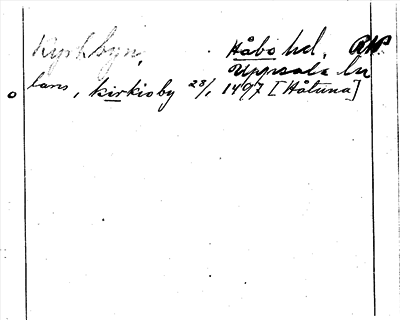 Kyrkbyn, Håbo hd, RAP.
Uppsala län
lars, kirkioby 28/1 1497 [Håtuna]